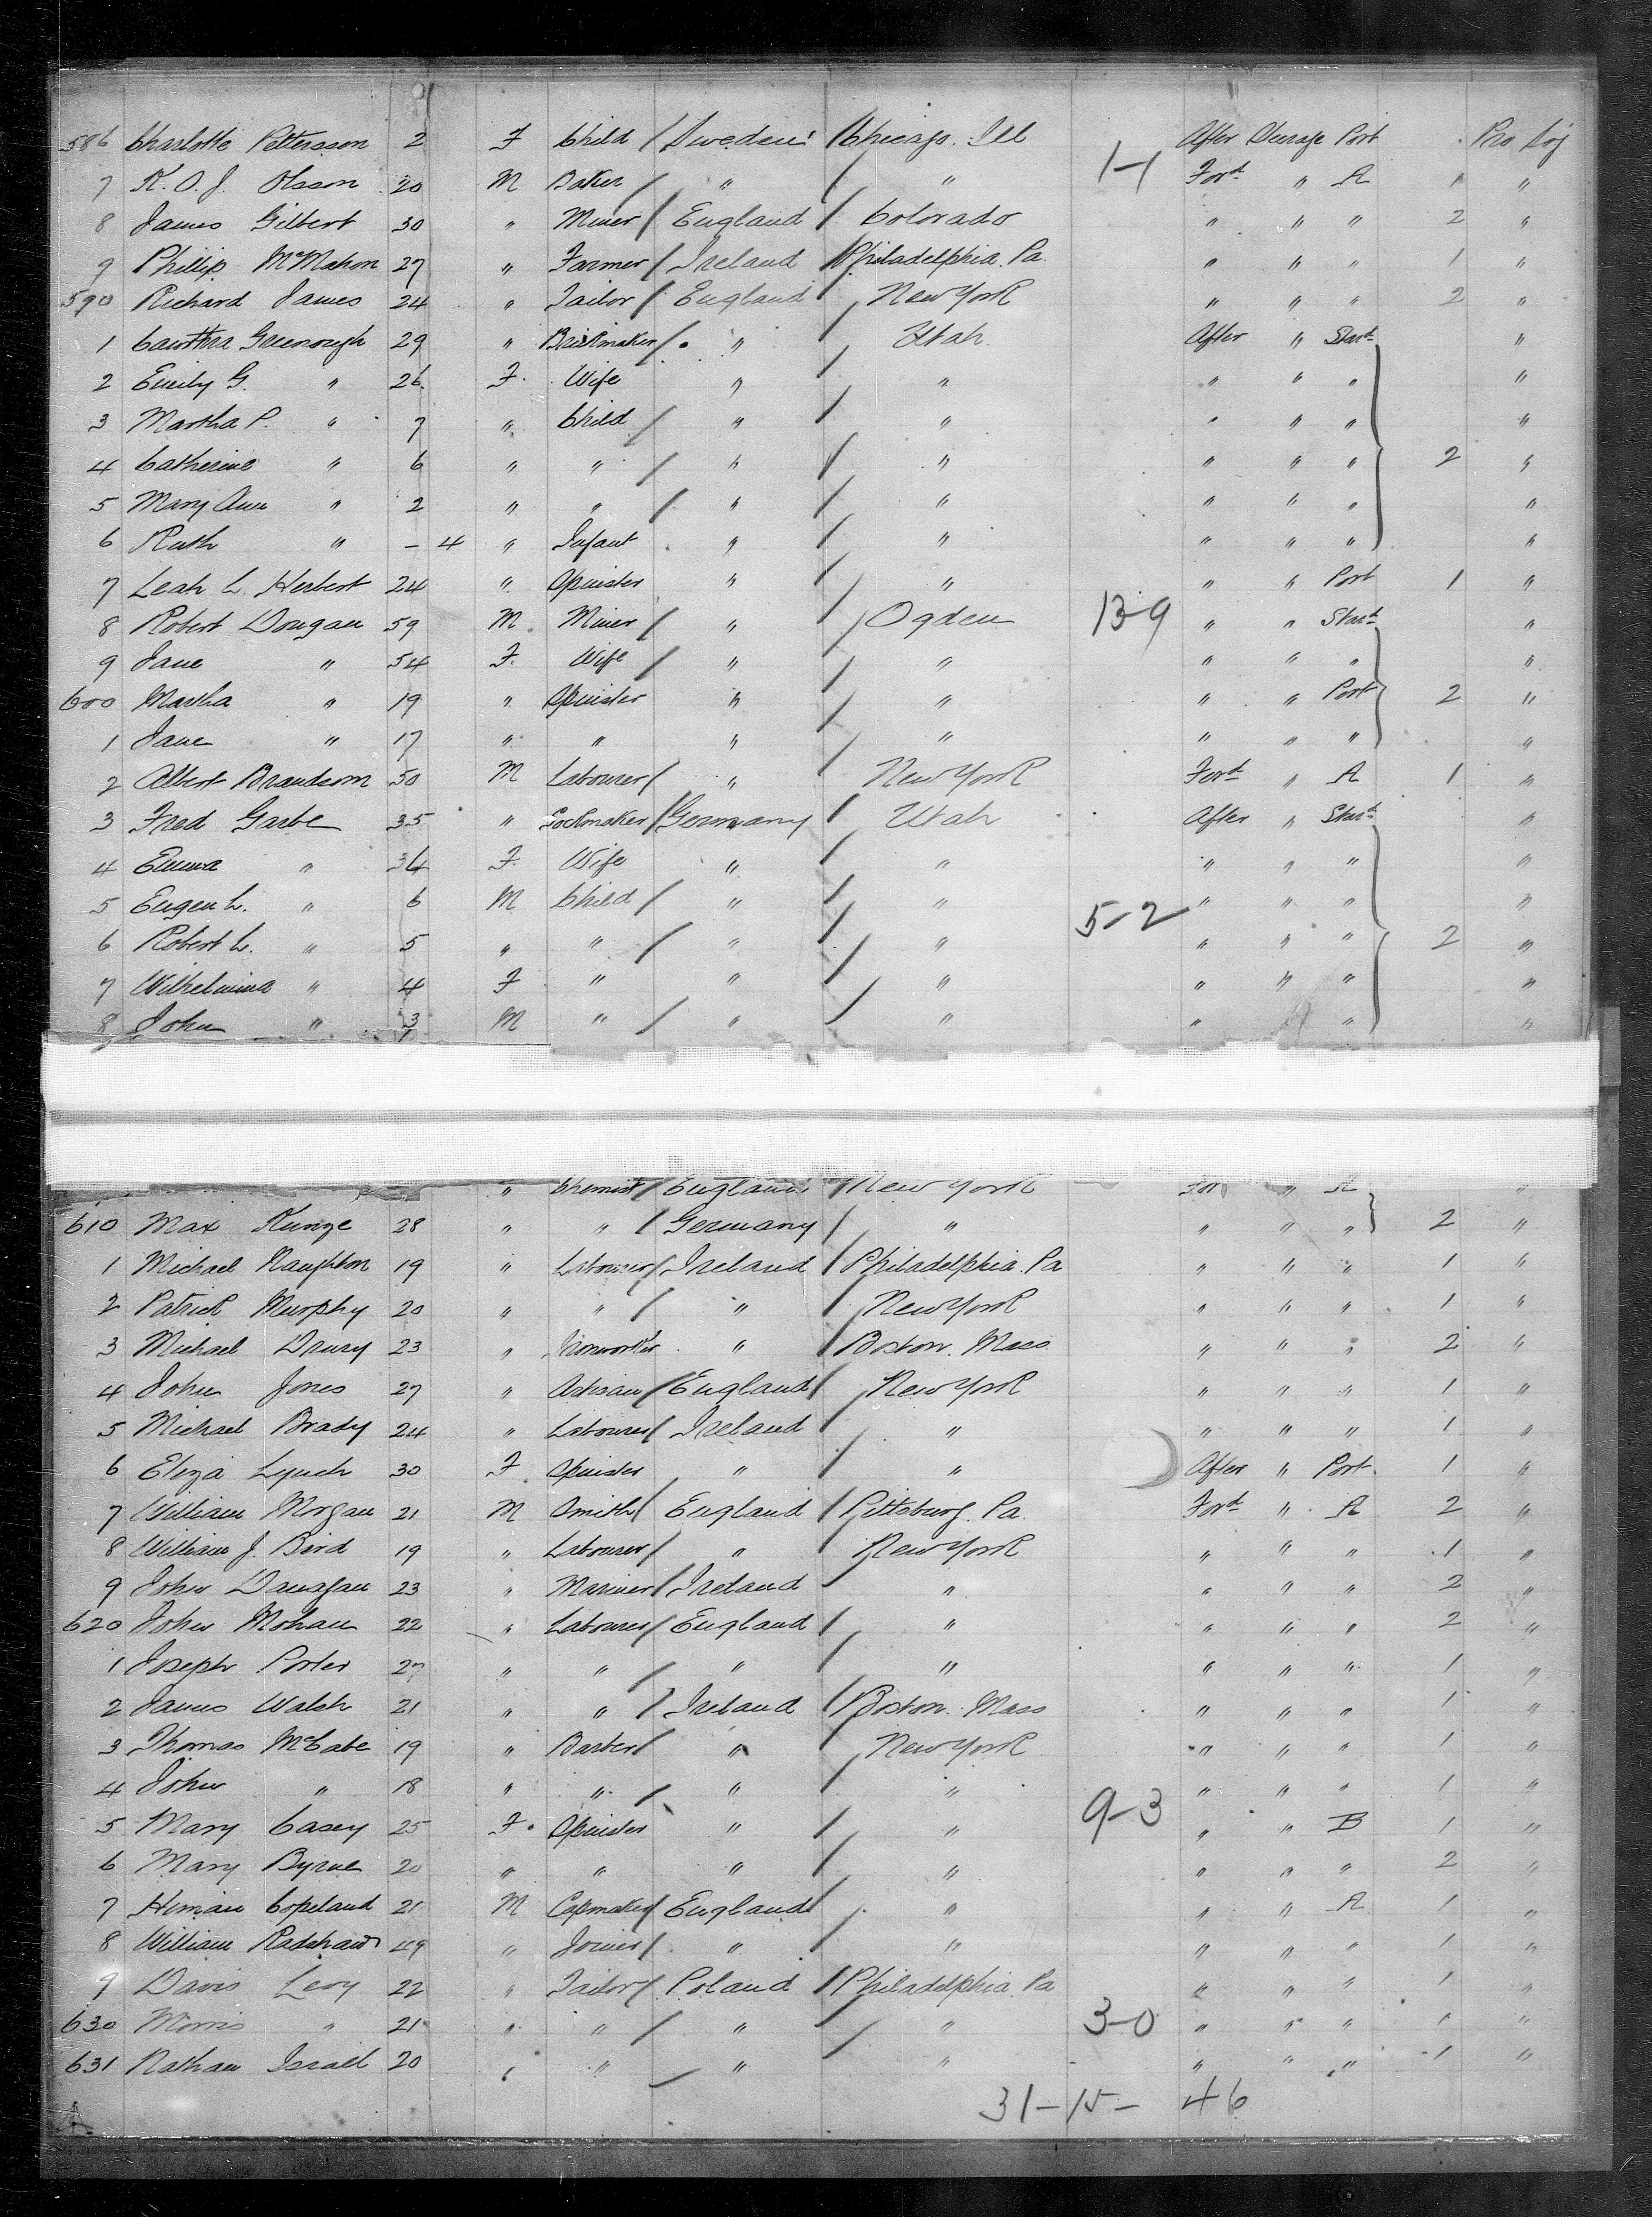 586 Charlotte Pettersson 2 F Child / Sweden / Chicago. Ill After Steerage Port Pro Soj
7 K. O. J. Olsson 20 M Baker / " / " 1-1 For'd " A 1 "
8 James Gilbert 30 " Miner / England / Colorado " " " 2 "
9 Phillip McMahon 27 " Farmer / Ireland / Philadelphia. Pa " " " 1 "
590 Richard James 24 " Tailor / England / New York " " " 2 "
1 Cawthra Greenough 29 " Brickmaker / " / Utah After " Star'd "
2 Emily G. " 26 F. Wife " / " " " " "
3 Martha P. " 7 " Child / " / " " " " "
4 Catherine " 6 " " / " / " " " " 2 "
5 Mary Ann " 2 " " / " / " " " " "
6 Ruth " - 4 " Infant " / " " " " "
7 Leah L. Herbert 24 " Spinster " / " " " Port 1 "
8 Robert Dougan 59 M Miner / " / Ogden 13-9 " " Star'd "
9 Jane " 54 F. Wife / " / " " " " "
600 Martha " 19 " Spinster " / " " " Port 2 "
1 Jane " 17 " " " / " " " " "
2 Albert 50 M Labourer / " / New York For'd " A 1 "
3 Fred Garbe 35 " / Germany / Utah After " Star'd "
4 Emma " 34 F. Wife " / " " " " "
5 Eugen L. " 6 M Child / " / " 5-2 " " " "
6 Robert L. " 5 " " / " / " " " " 2 "
7 Wilhelmina " 4 F " " / " " " " "
8 John " 3 M " / " / " " " "
" Chemist / England / New York For " A "
610 Max Kunze 28 " " / Germany / " " " " 2 "
1 Michael Naughton 19 " Labourer / Ireland / Philadelphia. Pa " " " 1 "
2 Patrick Murphy 20 " " / " / New York " " " 1 "
3 Michael Drury 23 " Ironworker " / Boston. Mass " " " 2 "
4 John Jones 27 " Artisan / England / New York " " " 1 "
5 Michael Brady 24 " Labourer / Ireland / " " " " 1 "
6 Eliza Lynch 30 F Spinster " / " After " Port. 1 "
7 William Morgan 21 M Smith / England / Pittsburg. Pa. For'd " A 2 "
8 William J. Bird 19 " Labourer / " / New York " " " 1 "
9 John 23 " Mariner / Ireland / " " " " 2 "
620 John Mohan 22 " Labourer / England / " " " " 2 "
1 Joseph Porter 27 " " / " / " " " " 1 "
2 James Walsh 21 " " / Ireland / Boston. Mass " " " 1 "
3 Thomas McCabe 19 " Barber / " / New York " " " 1 "
4 John " 18 " " / " / " " " " 1 "
5 Mary Casey 25 F. Spinster " / " 9-3 " " B 1 "
6 Mary Byrne 20 " " " / " " " " 2 "
7 Hyman Copeland 21 M Capmaker / England / " " " A 1 "
8 William Radshaw 49 " Joiner / " / " " " " 1 "
9 Davis Levy 22 " Tailor / Poland / Philadelphia. Pa " " " 1 "
630 Morris " 21 " " / " / " 3-0 " " " 1 "
631 Nathan Israel 20 " " / " " " " " 1 "
31-15- 46